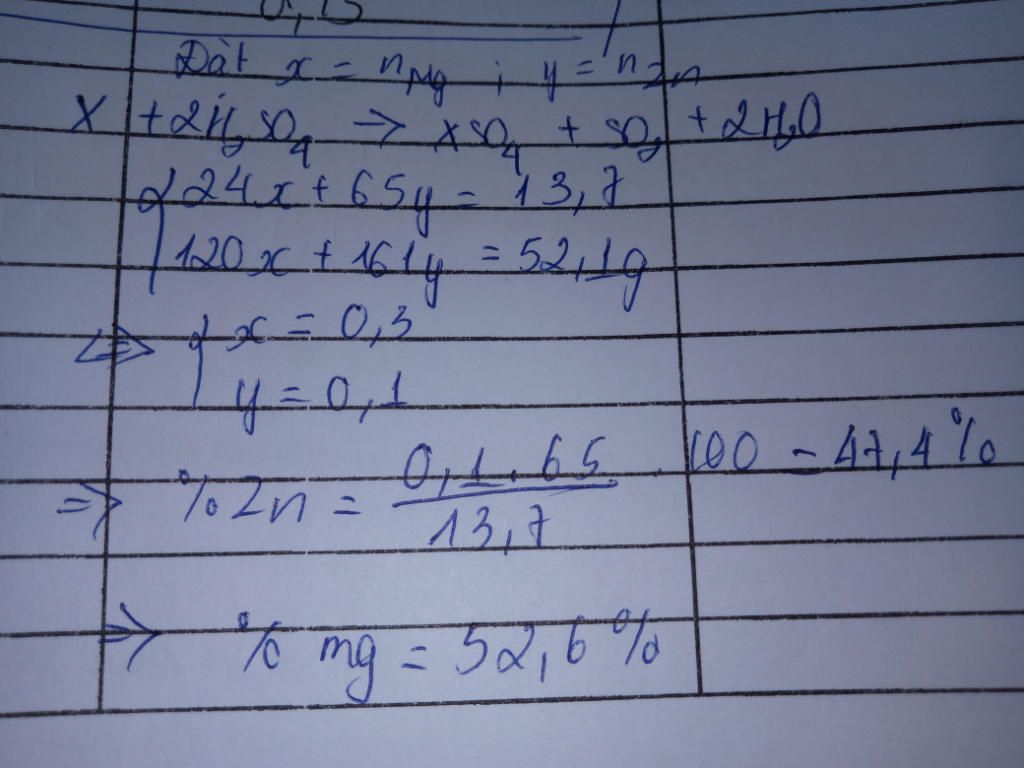 0,15
Đặt x = nMg ; y = nZn
X + 2H2SO4 → XSO4 + SO2 + 2H2O
{ 24x + 65y = 13,7
120x + 161y = 52,1g
<=> { x = 0,3
y = 0,1
=> % Zn = 0,1.65 / 13,7 . 100 = 47,4%
=> % mg = 52,6%